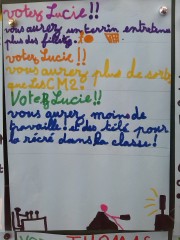 votez Lucie!!
vous aurez un terrin entretenu
plus des fillets.
votez Lucie!!
vous aurez plus de sorties
que Les CM2!
Votez Lucie!!
vous aurez moins de
travaille! et des télé pour
la récré dans la classe!